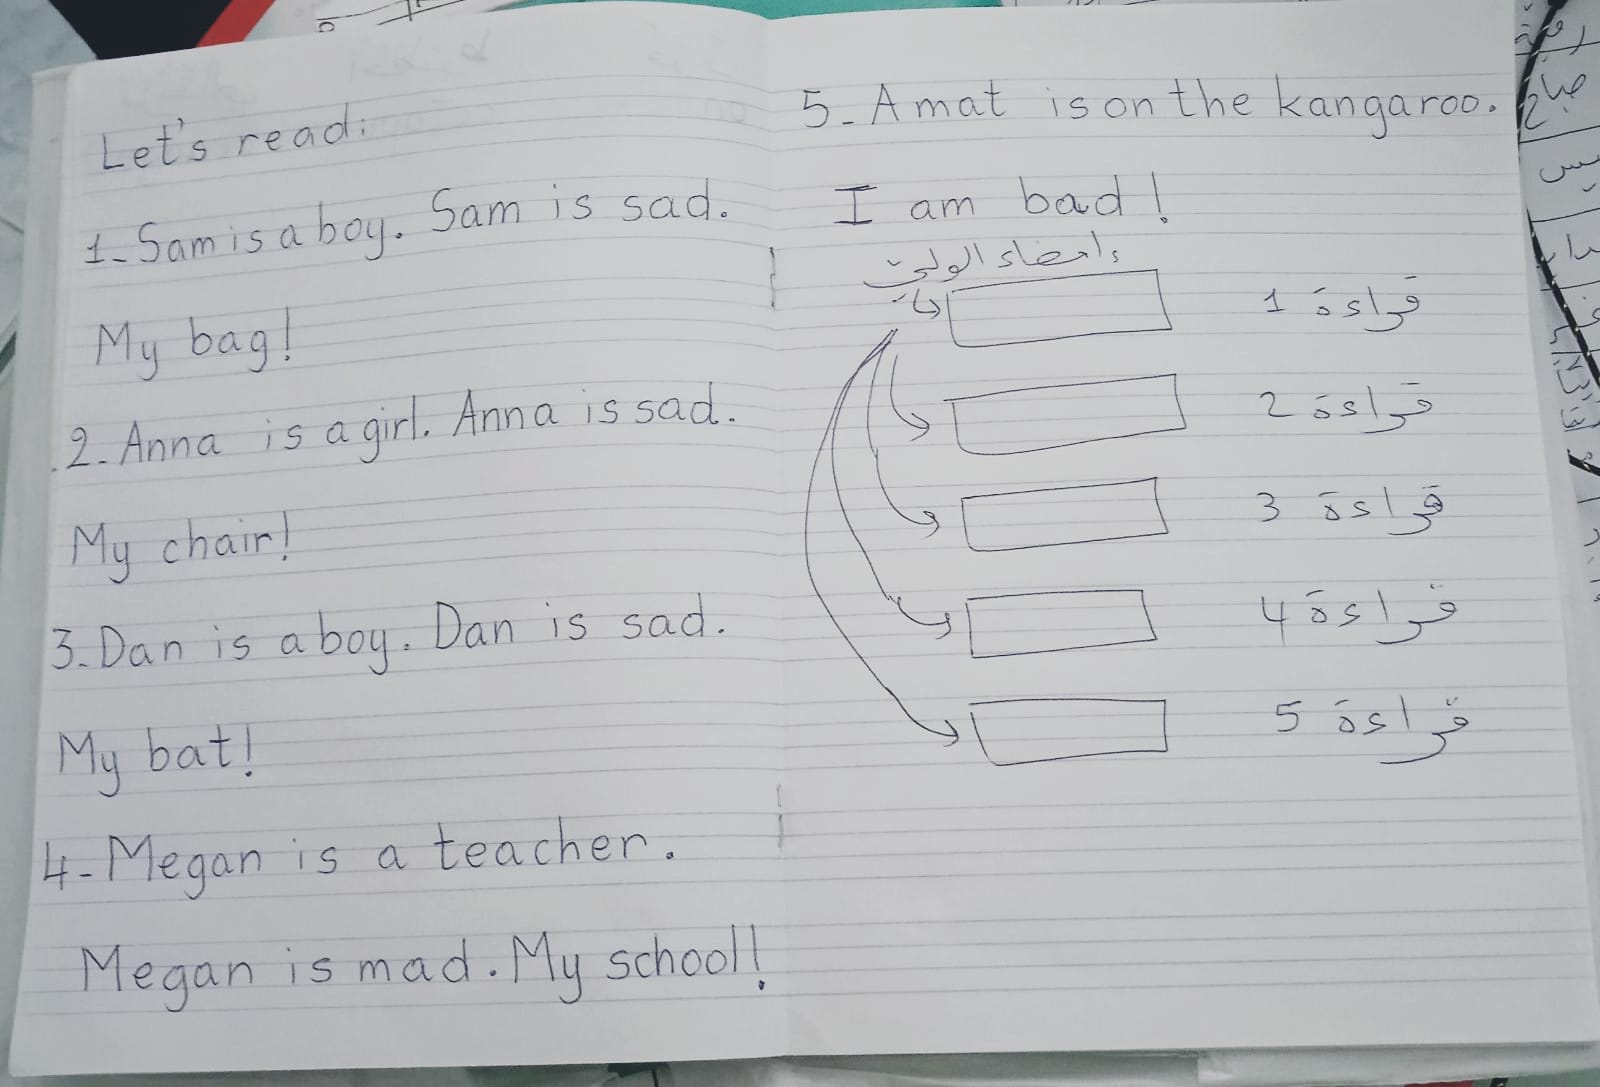 Let's read:
1- Sam is a boy. Sam is sad.
My bag!
2- Anna is a girl. Anna is sad.
My chair!
3- Dan is a boy. Dan is sad.
My bat!
4- Megan is a teacher.
Megan is mad. My school!
5- A mat is on the kangaroo.
I am bad!
امضاء الولي
قراءة 1
قراءة 2
قراءة 3
قراءة 4
قراءة 5